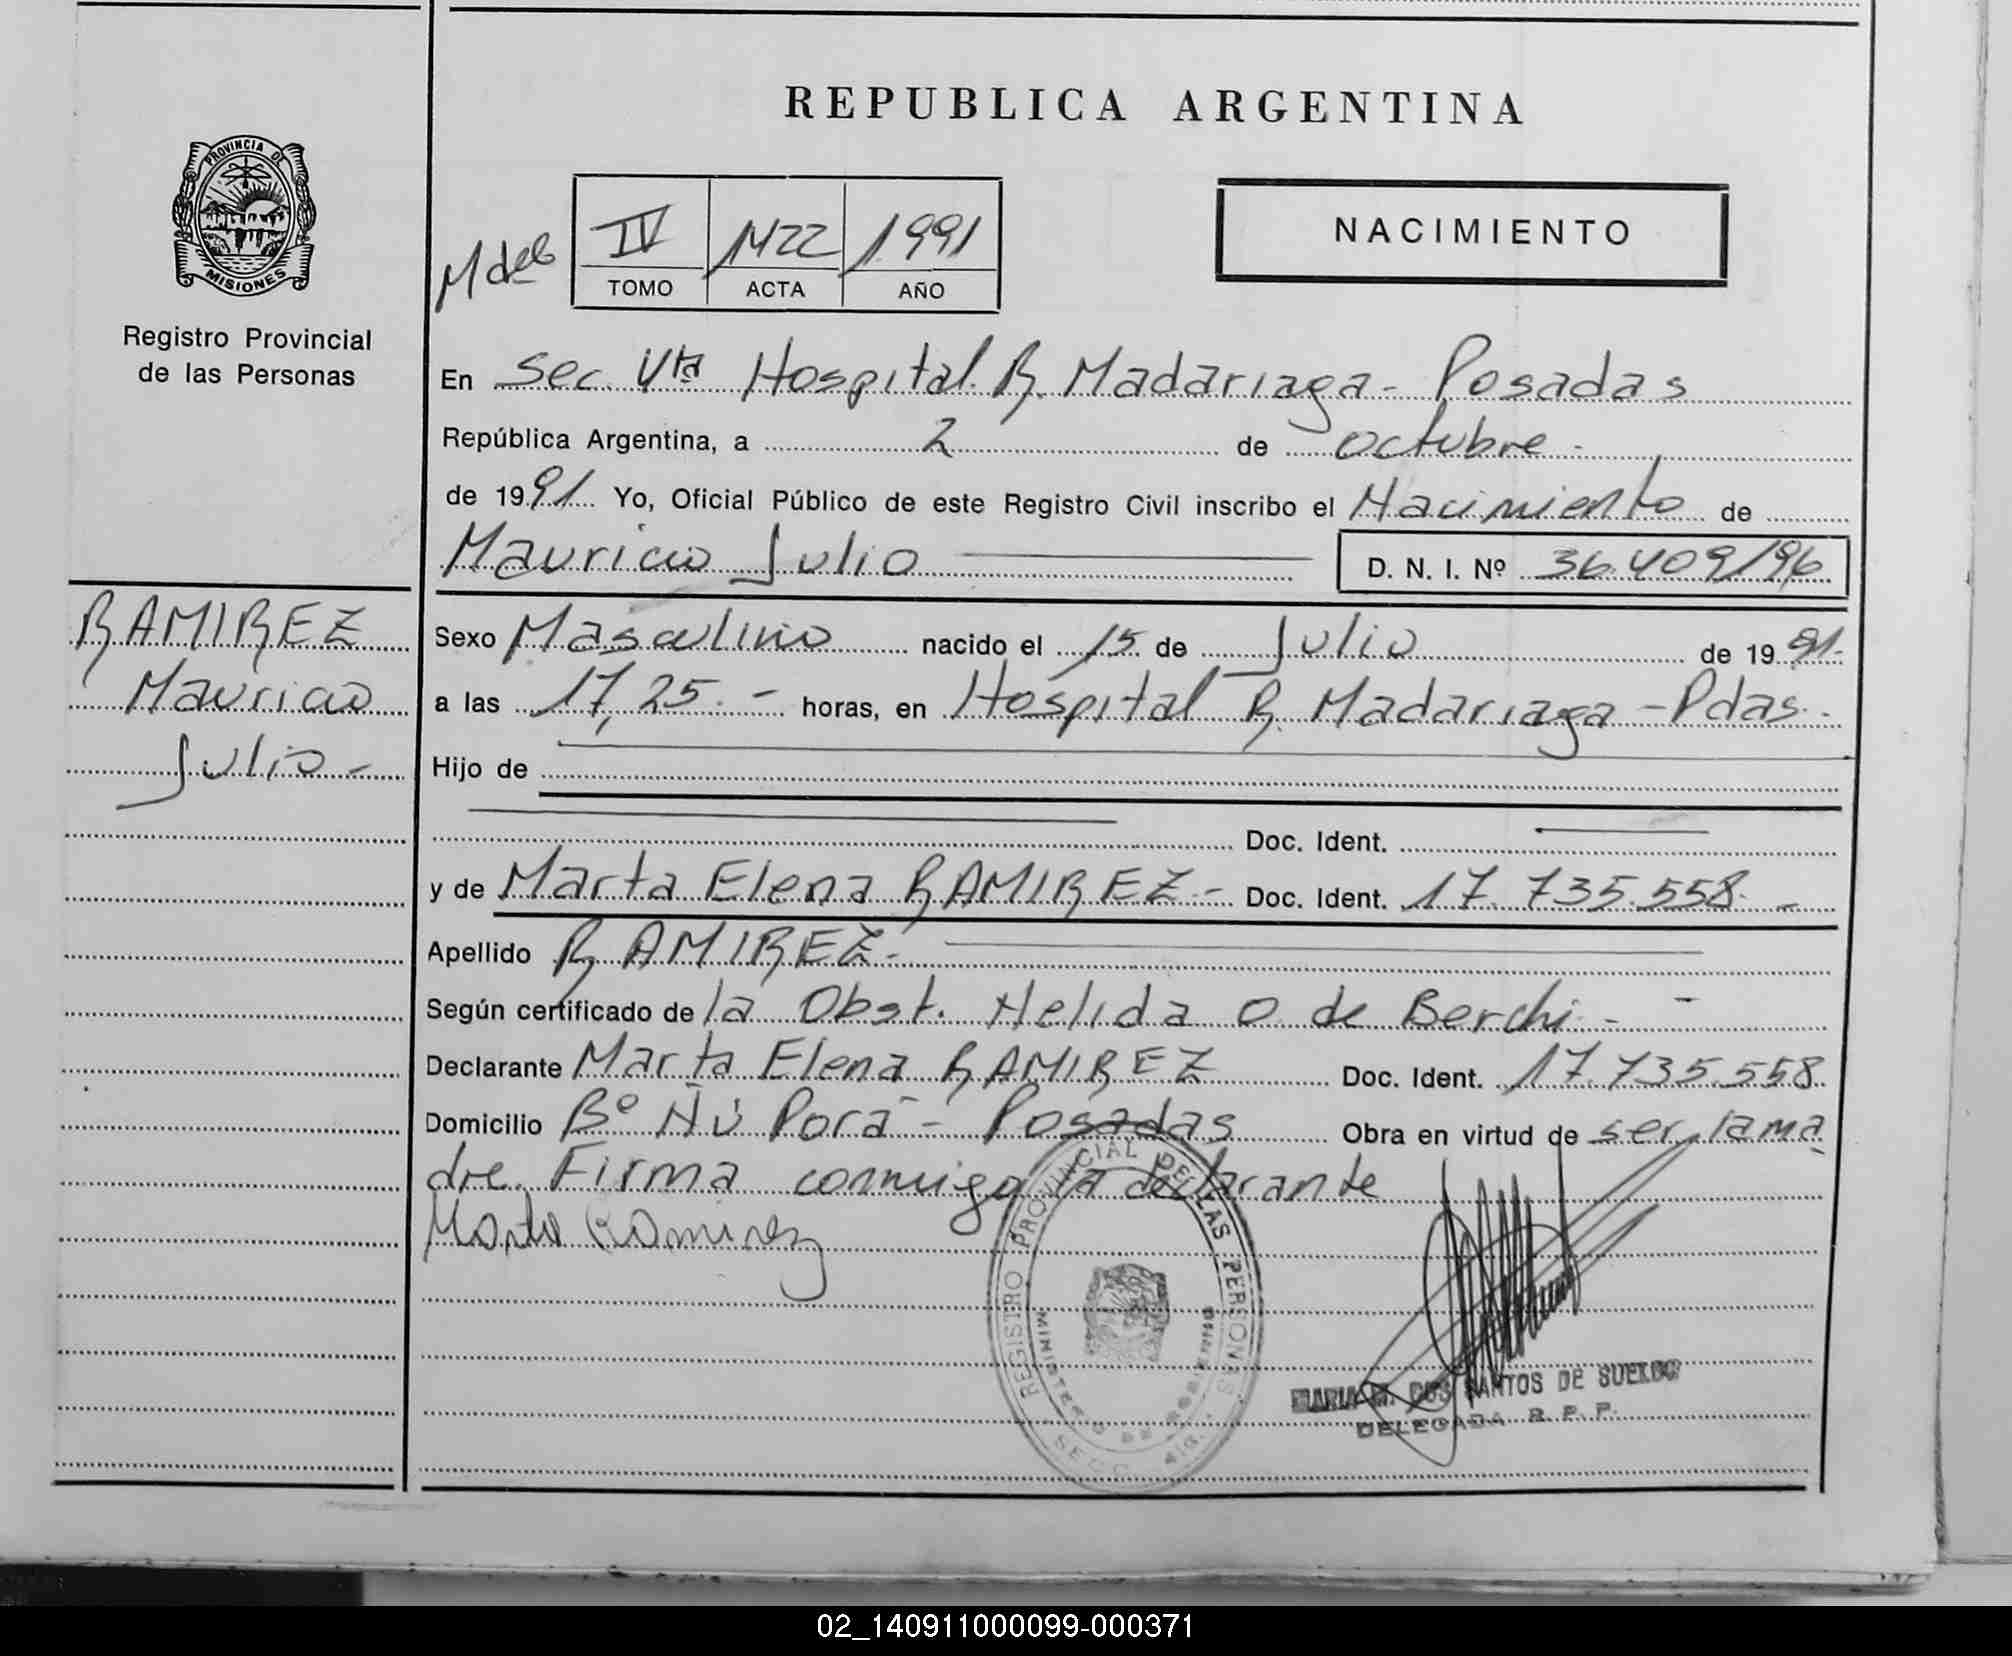 REPUBLICA ARGENTINA
PROVINCIA DE
MISIONES
Registro Provincial
de las Personas
IV 1422 1991
TOMO ACTA AÑO
NACIMIENTO
En Sec. Vta Hospital R. Madariaga - Posadas
República Argentina, a 2 de octubre -
de 1991 Yo, Oficial Público de este Registro Civil inscribo el Nacimiento de
Mauricio Julio D. N. I. Nº 36.409/96
RAMIREZ
Mauricio
Julio -
Sexo Masculino nacido el 15 de Julio de 1991.
a las 17,25. - horas, en Hospital R. Madariaga - Pdas. -
Hijo de
Doc. Ident.
y de Marta Elena RAMIREZ. - Doc. Ident. 17.735.558. -
Apellido RAMIREZ. -
Según certificado de la Obst. Nelida O de Berchi - -
Declarante Marta Elena RAMIREZ Doc. Ident. 17.735.558
Domicilio Bº Ñu Pora - Posadas Obra en virtud de ser la ma
dre. Firma conmigo la declarante
Marta Ramirez
REGISTRO PROVINCIAL DE LAS PERSONAS
MARIA M. DOS SANTOS DE
DELEGADA R. P. P.
02_140911000099-000371